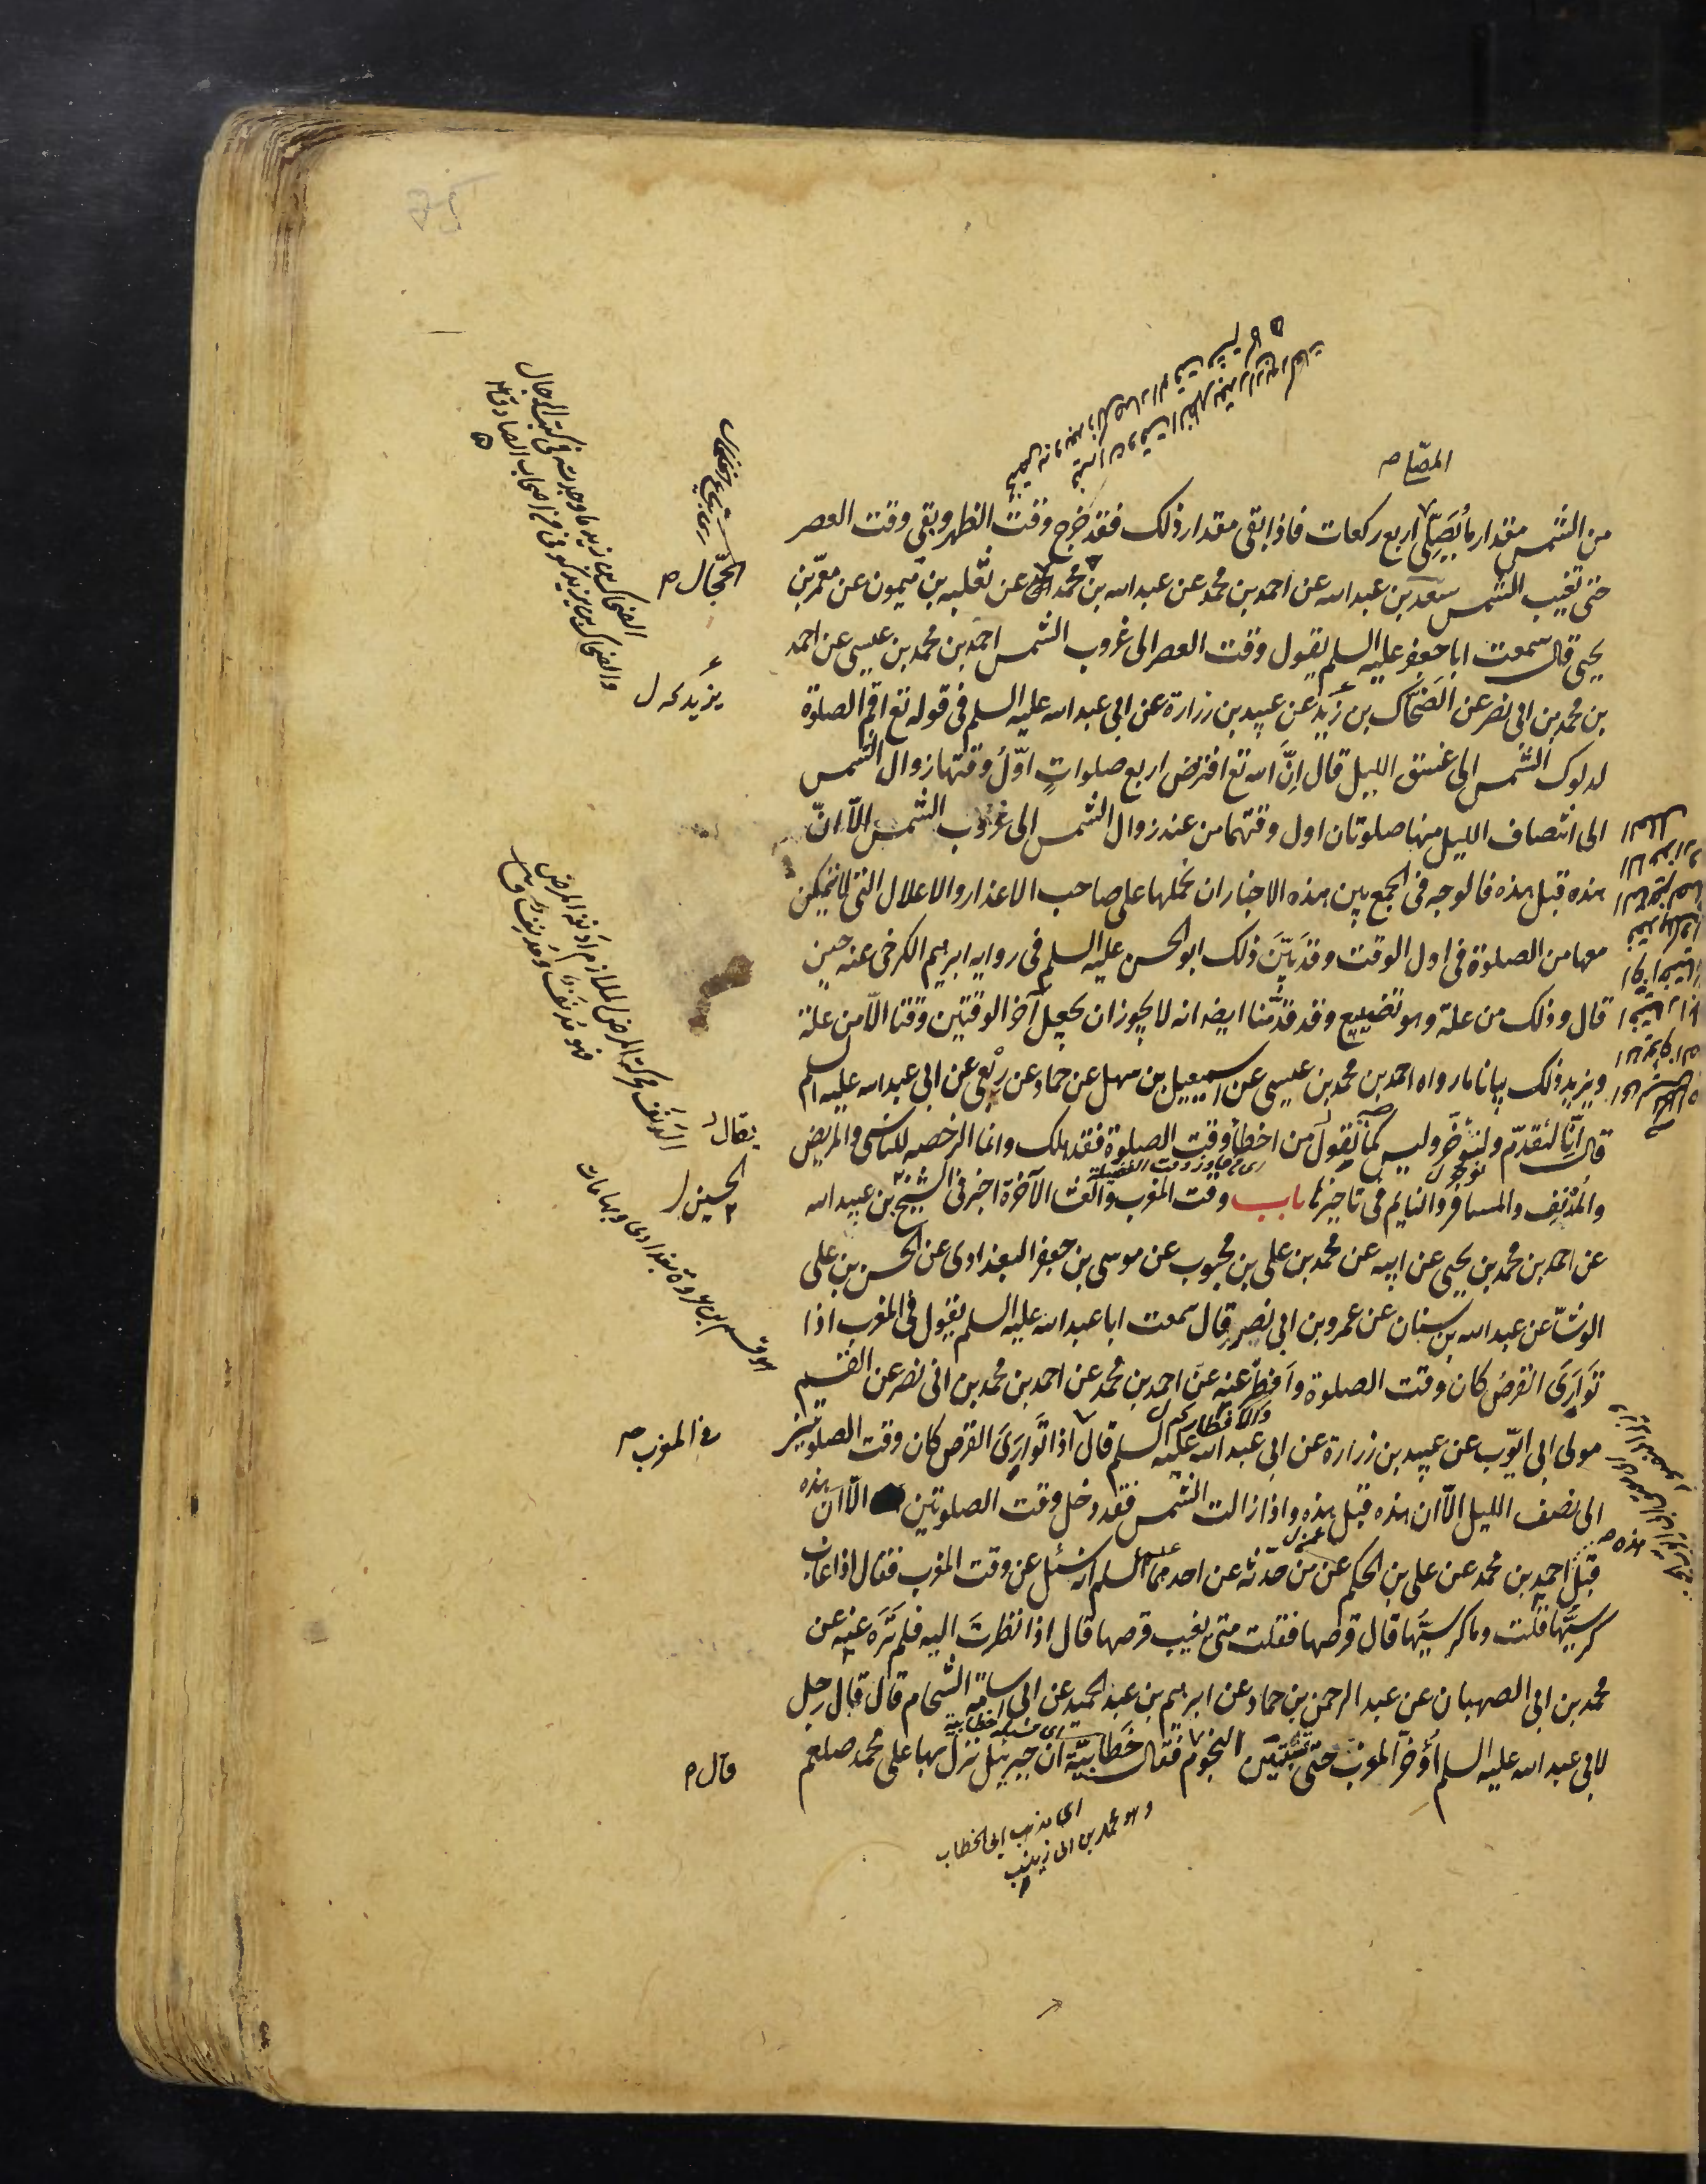 المصلي ص
من الشمس مقدار ما يُصَلّى اربع ركعات فاذا بقى مقدار ذلك فقد خرج وقت الظهر وبقى وقت العصر
حتى تغيب الشمس سعد بن عبد الله عن احمد بن محمد عن عبد الله بن محمد عن ثعلبه بن ميمون عن معمّر بن
يحيى قال سمعت ابا جعفر عليه السلم يقول وقت العصر الى غروب الشمس احمد بن محمد بن عيسى عن احمد
بن محمد بن ابى نصر عن الضحّاك بن زيد عن عبيد بن زرارة عن ابى عبد الله عليه السلم فى قوله تع اقم الصلوة
لدلوك الشمس الى غسق الليل قال اِنَّ الله تع افترض اربع صلواتٍ اوّلُ وقتها زوال الشمس
الى انتصاف الليل منها صلوتان اول وقتهما من عند زوال الشمس الى غروب الشمس الّا انّ
هذه قبل هذه فالوجه فى الجمع بين هذه الاخبار ان نحملها على صاحب الاعذار والاعلال التى لا يتمكن
معها من الصلوة فى اول الوقت وقد بَيَّنَ ذلك ابو الحسن عليه السلم فى روايه ابرهيم الكرخى عنه حين
قال وذلك من علة وهو تضييع وقد قدّمنا ايضا انه لا يجوز ان يجعل آخر الوقتين وقتا الّا من علة
ويزيد ذلك بيانا ما رواه احمد بن محمد بن عيسى عن اسمعيل بن سهل عن حماد عن ربعى عن ابى عبد الله عليه السلم
قال انّا لنقدّم ولنؤخّر وليس كما يقول من اخطأ وقت الصلوة فقد هلك وانما الرخصه للناسى والمريض
والمُدْنِفِ والمسافر والنايم فى تاخيرها باب وقت المغرب والعشا الآخرة اخبرنى الشيخ بن عبيد الله
عن احمد بن محمد بن يحيى عن ابيه عن محمد بن على بن محبوب عن موسى بن جعفر البغدادى عن الحسن بن على
الوشّا عن عبد الله بن سنان عن عمرو بن ابى نصر قال سمعت ابا عبد الله عليه السلم يقول فى المغرب اذا
تَوارَى القرصُ كان وقت الصلوة وأفطر عنه عن احمد بن محمد عن احمد بن محمد بن ابى نصر عن القسم
مولى ابى ايّوب عن عبيد بن زرارة عن ابى عبد الله عليه السلم قال اذا تَوارَى القرص كان وقت الصلوتين
الى نصف الليل الّا ان هذه قبل هذه واذا زالت الشمس فقد دخل وقت الصلوتين الّا ان هذه
قبل احمد بن محمد عن على بن الحكم عن من حدّثه عن احدهما عليهما السلم انه سُئل عن وقت المغرب فقال اذا غاب
كرسيُّها قلت وما كرسيُّها قال قرصها فقلت متى يغيب قرصها قال اذا نظرتَ اليه فلم تَرَه عنه عن
محمد بن ابى الصهبان عن عبد الرحمن بن حماد عن ابرهيم بن عبد الحميد عن ابى اسامة الشحام قال قال رجل
لابى عبد الله عليه السلم أُؤخّر المغرب حتى تستبين النجوم فقال خَطّابيّة ان جبرئيل نزل بها على محمد صلعم
الحجّال ص
الضحاك بن زيد ما وجدته فى كتب الرجال
والضحاك بن يزيد مذكور فى اصحاب الصادق ع
يزيد كه ل
يقال ل
الحسين ل
فى المغرب ص
هذه ص
قال ص
اى مذهب ابى الخطاب
وهو محمد بن ابى زينب